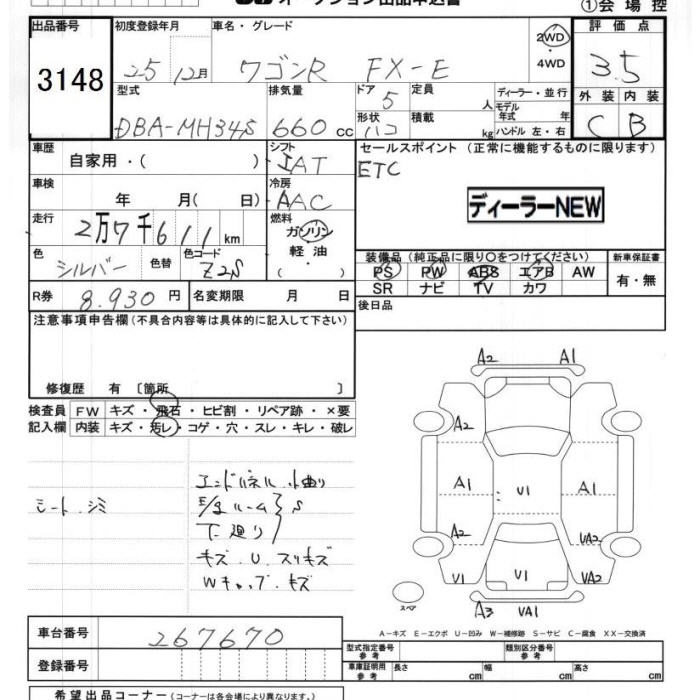 オークション出品申込書
①会場控
出品番号 3148
初度登録年月 25 12月
車名・グレード ワゴンR FX-E
2WD ・ 4WD
評価点 3.5
外装 C 内装 B
型式 DBA-MH34S
排気量 660 cc
ドア 5
形状 ハコ
定員 人
積載 kg
ディーラー・並行
モデル年式 年
ハンドル 左・右
車歴 自家用・( )
シフト IAT
セールスポイント (正常に機能するものに限ります)
ETC
ディーラーNEW
車検 年 月( 日)
冷房 AAC
走行 2万7千611km
燃料 ガソリン 軽油 ・ ( )
色 シルバー 色替
色コード Z2S
装備品 (純正品に限り○をつけてください)
PS PW ABS エアB AW
SR ナビ TV カワ
新車保証書 有・無
R券 8.930 円
名変期限 月 日
後日品
注意事項申告欄 (不具合内容等は具体的に記入して下さい)
修復歴 有 〔箇所 〕
検査員記入欄
FW キズ・飛石・ヒビ割・リペア跡・×要
内装 キズ・汚レ・コゲ・穴・スレ・キレ・破レ
シート シミ
エンドパネル 小曲り
E/gルーム S
下廻り
キズ.U.スリキズ
Wキャップ.キズ
A2 A1
A2
A1 U1 A1
A2 UA2
U1 U1 UA2
A3 UA1
スペア
A−キズ E−エクボ U−凹み W−補修跡 S−サビ C−腐食 XX−交換済
車台番号 267670
登録番号
型式指定番号 参考
類別区分番号 参考
車庫証明用 参考 長さ cm 幅 cm 高さ cm
希望出品コーナー (コーナーは各会場により異なります)